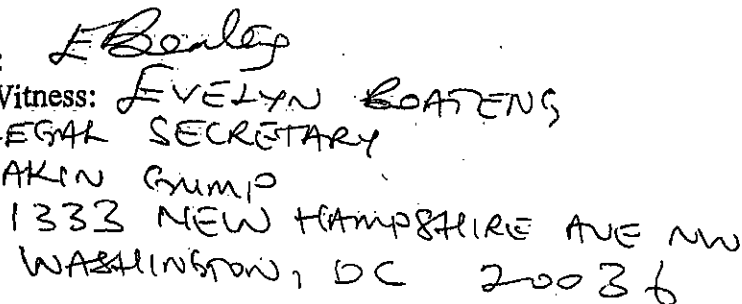 : EBoateng
Witness: EVELYN BOATENG
LEGAL SECRETARY
AKIN GUMP
1333 NEW HAMPSHIRE AVE NW
WASHINGTON, DC 20036